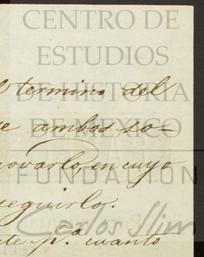 CENTRO DE
ESTUDIOS
DE HISTORIA
DE MEXICO
FUNDACIÓN
Carlos Slim
l termino del
e ambos so-
ovarlo, en cuyo
seguirlo.
te p.ª cuanto